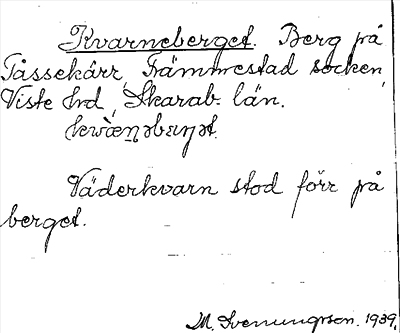 Kvarneberget. Berg på
Tåssekärr, Främmestad socken,
Viste hd, Skarab. län.
Väderkvarn stod förr på
berget.
M. Svenungsson. 1939.